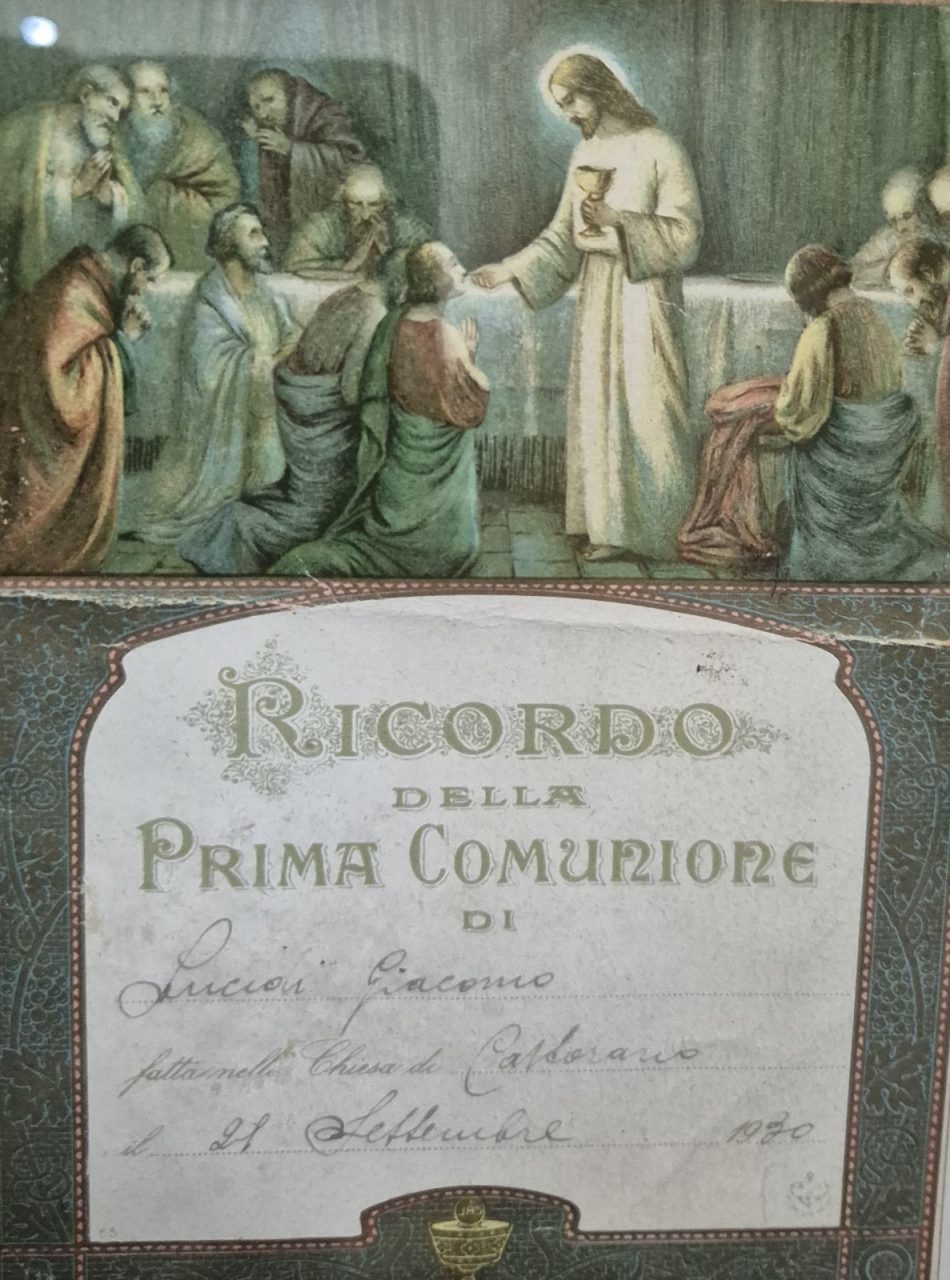 RICORDO
DELLA
PRIMA COMUNIONE
DI
Giacomo
fatta nella Chiesa di Castorano
il 21 Settembre 1930
JHS